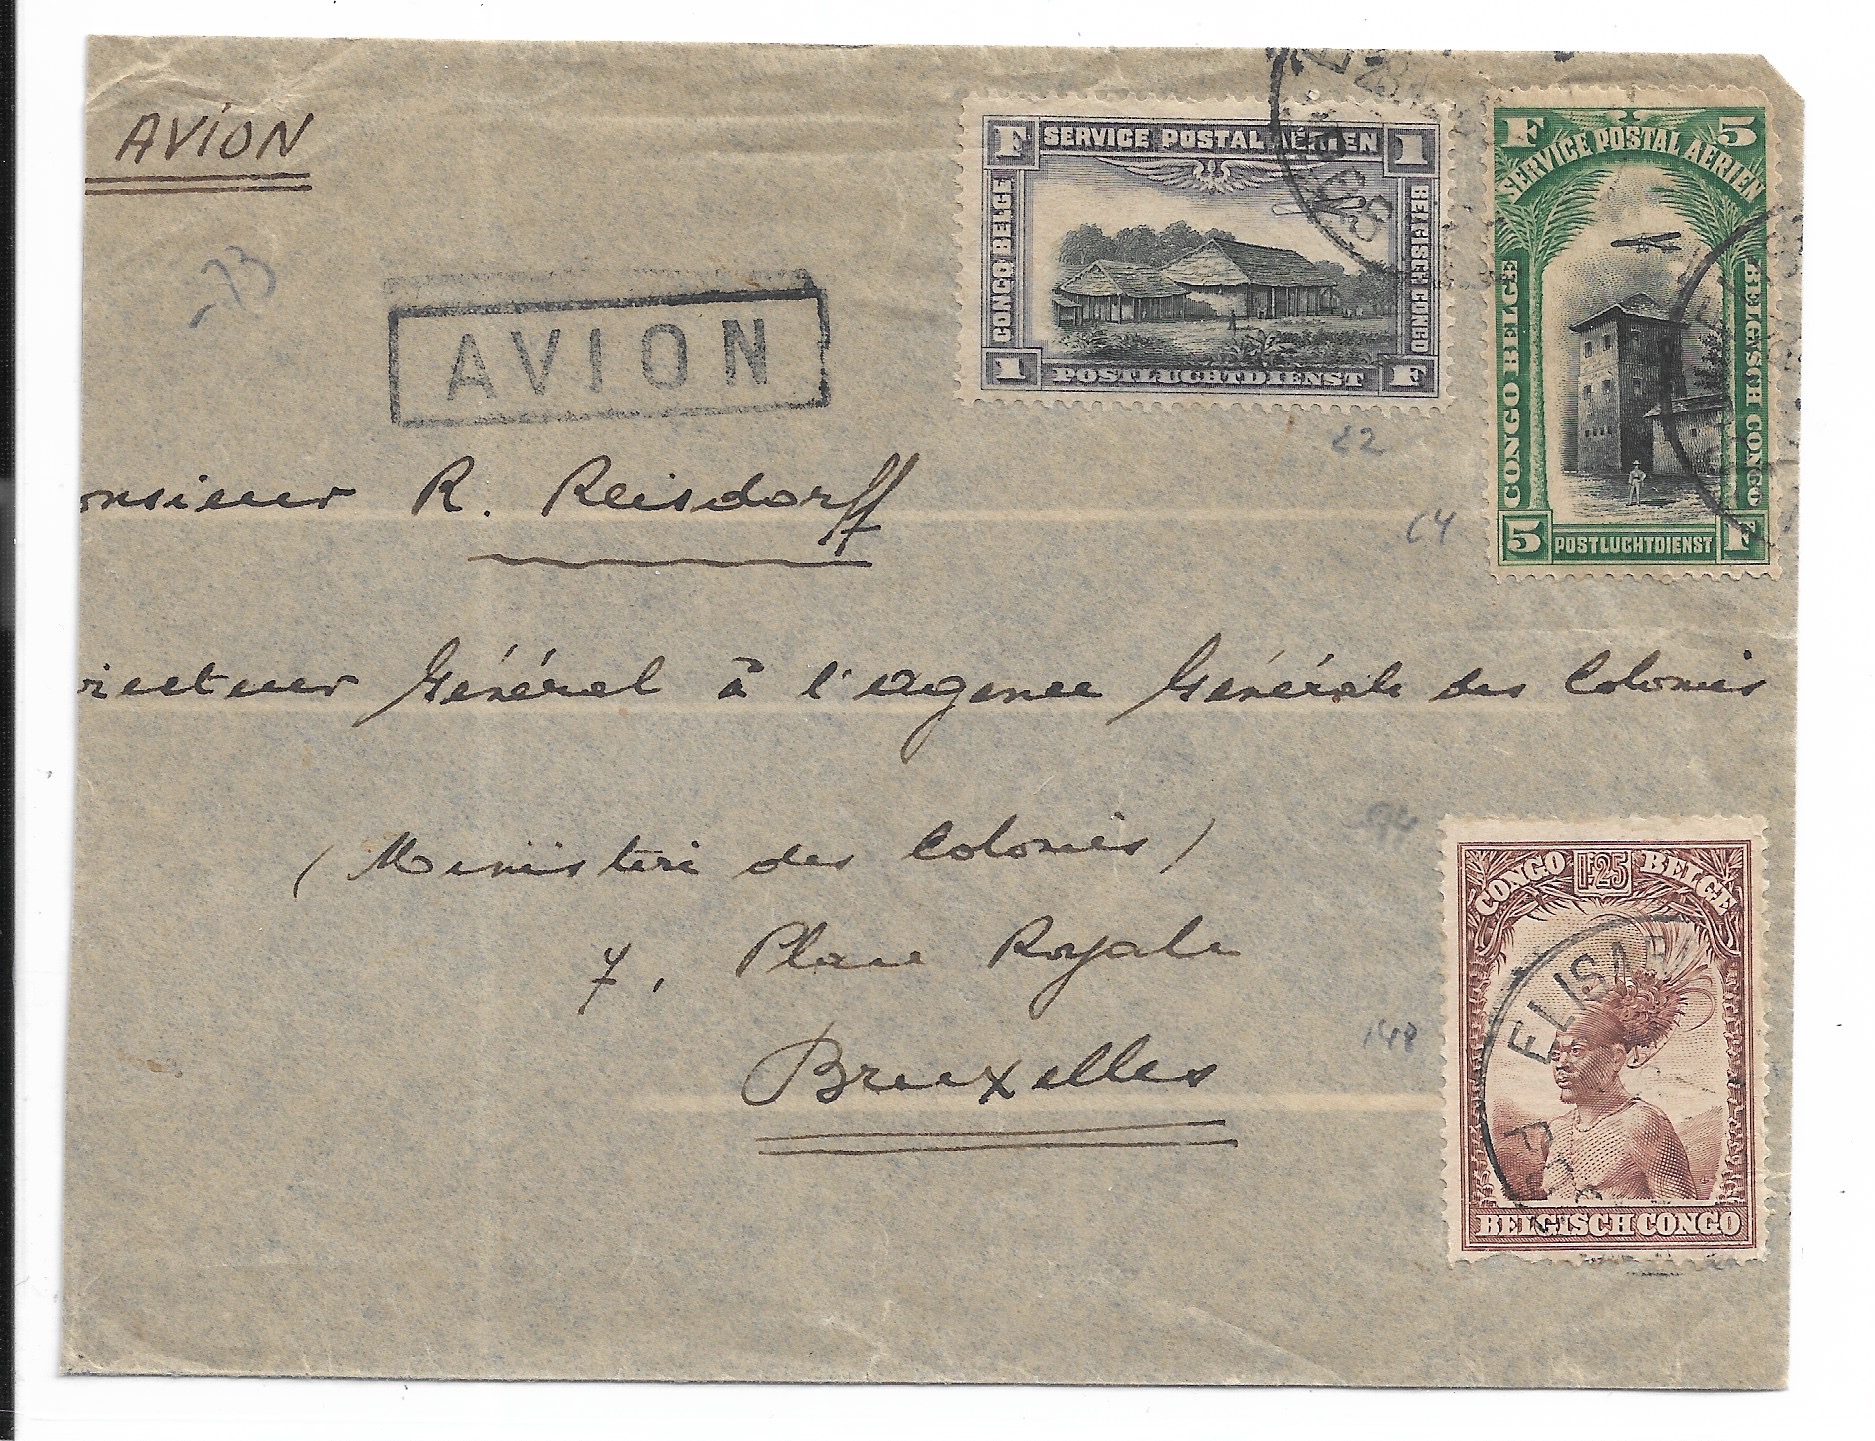 AVION
F SERVICE POSTAL AÉRIEN 1
CONGO BELGE
BELGISCH CONGO
1 POSTLUCHTDIENST F
F 5
SERVICE POSTAL AÉRIEN
CONGO BELGE
BELGISCH CONGO
5 POSTLUCHTDIENST F
-73
AVION
22
64
onsieur R. Reisdorff
recteur Général à l'agence Générale des Colonies
(Ministère des Colonies)
7, Place Royale
Bruxelles
148
CONGO 1F25 BELGE
ELISAB
BELGISCH CONGO